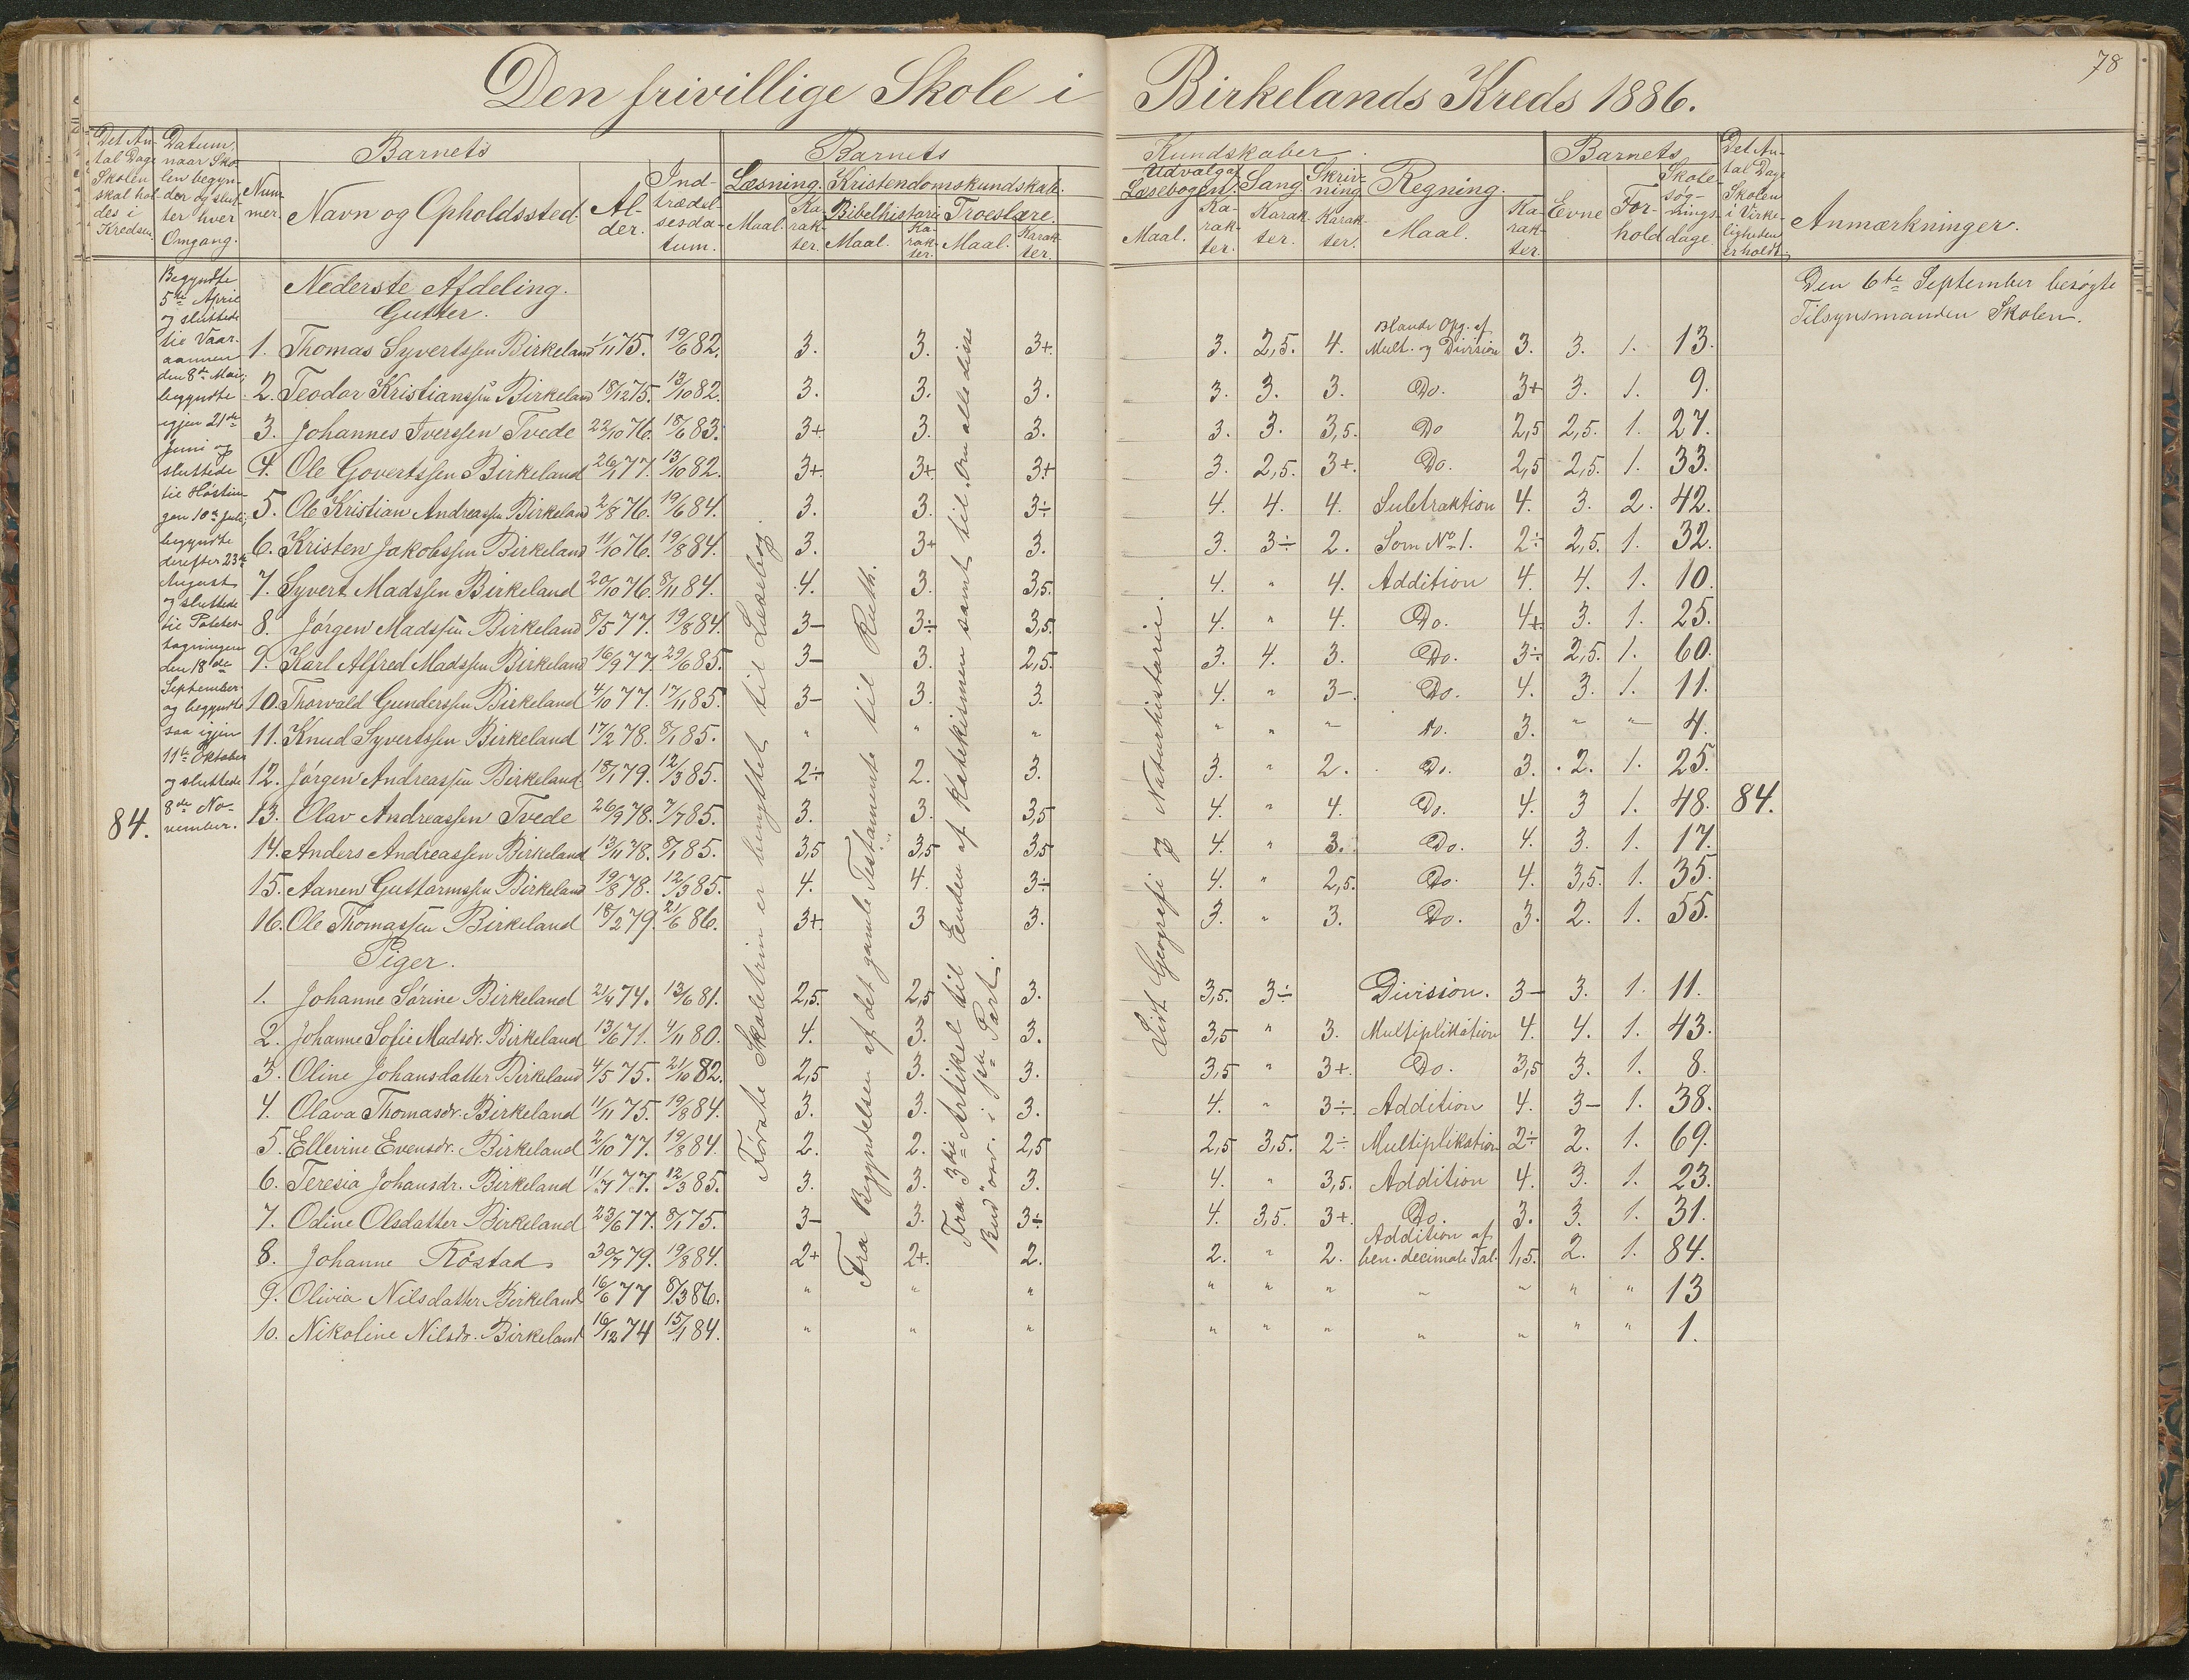 Den frivillige Skole i Birkelands Kreds 1886.
78
Det An-
tal Dage
Skolen
skal hol-
des i
Kredsen.
Datum,
naar Sko-
len begyn-
der og slut-
ter hver
Omgang.
Barnets
Num-
mer.
Navn og Opholdssted.
Al-
der.
Ind-
trædel-
sesda-
tum.
Barnets
Læsning. Kristendomskundskab.
Maal.
Ka-
rak-
ter.
Bibelhistorie
Maal.
Ka-
rak-
ter.
Troeslære.
Maal.
Karak-
ter.
Kundskaber.
Udvalg af
Læsebogen.
Maal.
Ka-
rak-
ter.
Sang
Karak-
ter.
Skriv-
ning
Karak-
ter.
Regning.
Maal.
Ka-
rak-
ter.
Barnets
Evne
For-
hold
Skole-
søg-
nings-
dage.
Det An-
tal Dage
Skolen
i Virke-
ligheden
er holdt.
Anmærkninger.
84.
Begyndte
5te April
og sluttede
til Vaar-
aannen
den 8de Mai;
begyndte
igjen 21de
Juni og
sluttede
til Høstin-
gen 10de Juli;
begyndte
derefter 23de
August
og sluttede
til Potetes-
tagningen
den 18de
September
og begyndte
saa igjen
11te Oktober
og sluttede
8de No-
vember.
Nederste Afdeling.
Gutter.
1. Thomas Syvertssen Birkeland 1/11 75. 19/6 82. 3. 3. 3+. 3. 2,5. 4. Blande Opg. af Mult. og Division 3. 3. 1. 13.
2. Teodor Kristianssen Birkeland 18/12 75. 13/10 82. 3. 3. 3. 3. 3. 3. Do. 3+ 3. 1. 9.
3. Johannes Iverssen Tvede 22/10 76. 18/6 83. 3+. 3. 3. 3. 3. 3,5. Do 2,5 2,5. 1. 27.
4. Ole Govertssen Birkeland 26/1 77. 13/10 82. 3+. 3+. 3+ 3. 2,5. 3+. Do. 2,5 2,5. 1. 33.
5. Ole Kristian Andreassen Birkeland 2/8 76. 19/6 84. 3. 3. 3÷ 4. 4. 4. Subtraktion 4. 3. 2. 42.
6. Kristen Jakobssen Birkeland 11/10 76. 19/8 84. 3. 3+ 3. 3. 3÷ 2. Som No 1. 2÷ 2,5. 1. 32.
7. Syvert Madssen Birkeland 20/10 76. 8/11 84. 4. 3. 3,5. 4. " 4. Addition 4. 4. 1. 10.
8. Jørgen Madssen Birkeland 8/5 77. 19/8 84. 3- 3÷ 3,5. 4. " 4. Do. 4+ 3. 1. 25.
9. Karl Alfred Madssen Birkeland 16/9 77. 29/6 85. 3- 3. 2,5. 3. 4. 3. Do. 3÷ 2,5. 1. 60.
10. Thorvald Gunderssen Birkeland 4/10 77. 17/11 85. 3- 3. 3. 4. " 3-. Do. 4. 3. 1. 11.
11. Knud Syvertssen Birkeland 17/2 78. 8/1 85. " " " " " " Do. 3. " " 4.
12. Jørgen Andreassen Birkeland 18/1 79. 12/3 85. 2÷ 2. 3. 3. " 2. Do. 3. 2. 1. 25.
13. Olav Andreassen Tvede 26/9 78. 7/7 85. 3. 3. 3,5 4. " 4. Do. 4. 3 1. 48. 84.
14. Anders Andreassen Birkeland 13/11 78. 8/1 85. 3,5 3,5 3,5 4. " 3. Do. 4. 3. 1. 17.
15. Aanen Guttormssen Birkeland 19/8 78. 12/3 85. 4. 4. 3÷ 4. " 2,5. Do. 4. 3,5. 1. 35.
16. Ole Thomassen Birkeland 18/2 79. 21/6 86. 3+. 3 3. 3. " 3. Do. 3. 2. 1. 55.
Piger.
1. Johanne Sørine Birkeland 21/4 74. 13/6 81. 2,5. 2,5 3. 3,5. 3÷ Division. 3- 3. 1. 11.
2. Johanne Sofie Madsdr. Birkeland 13/6 71. 4/11 80. 4. 3. 3. 3,5 " 3. Multiplikation 4. 4. 1. 43.
3. Oline Johansdatter Birkeland 4/5 75. 21/10 82. 2,5 3. 3. 3,5 " 3+. Do. 3,5 3. 1. 8.
4. Olava Thomasdr. Birkeland 11/11 75. 19/8 84. 3. 3. 3. 4. " 3÷. Addition 4. 3- 1. 38.
5. Ellevine Evensdr. Birkeland 2/10 77. 19/8 84. 2. 2. 2,5 2,5 3,5. 2÷ Multiplikation 2÷ 2. 1. 69.
6. Teresia Johansdr. Birkeland 11/7 77. 12/3 85. 3. 3. 3. 4. " 3,5. Addition 4. 3. 1. 23.
7. Odine Olsdatter Birkeland 23/6 77. 8/1 75. 3- 3. 3÷ 4. 3,5. 3+. Do. 3. 3. 1. 31.
8. Johanne Røstad 30/7 79. 19/8 84. 2+ 2+. 2. 2. " 2. Addition af ben. decimale Tal. 1,5. 2. 1. 84.
9. Olivia Nilsdatter Birkeland 16/6 77 8/3 86. " " " " " " " " " " 13
10. Nikoline Nilsdr. Birkeland 16/12 74 15/1 84. " " " " " " " " " " 1.
Første Skoletrin er benyttet til Læsebog.
Fra Begyndelsen af det gamle Testamente til Ruth.
Fra 3die Artikel til Enden af Katekismen samt til Om alle disse
Bud osv. i 1ste Part.
Lidt Geografi og Naturhistorie.
Den 6te September besøgte
Tilsynsmanden Skolen.